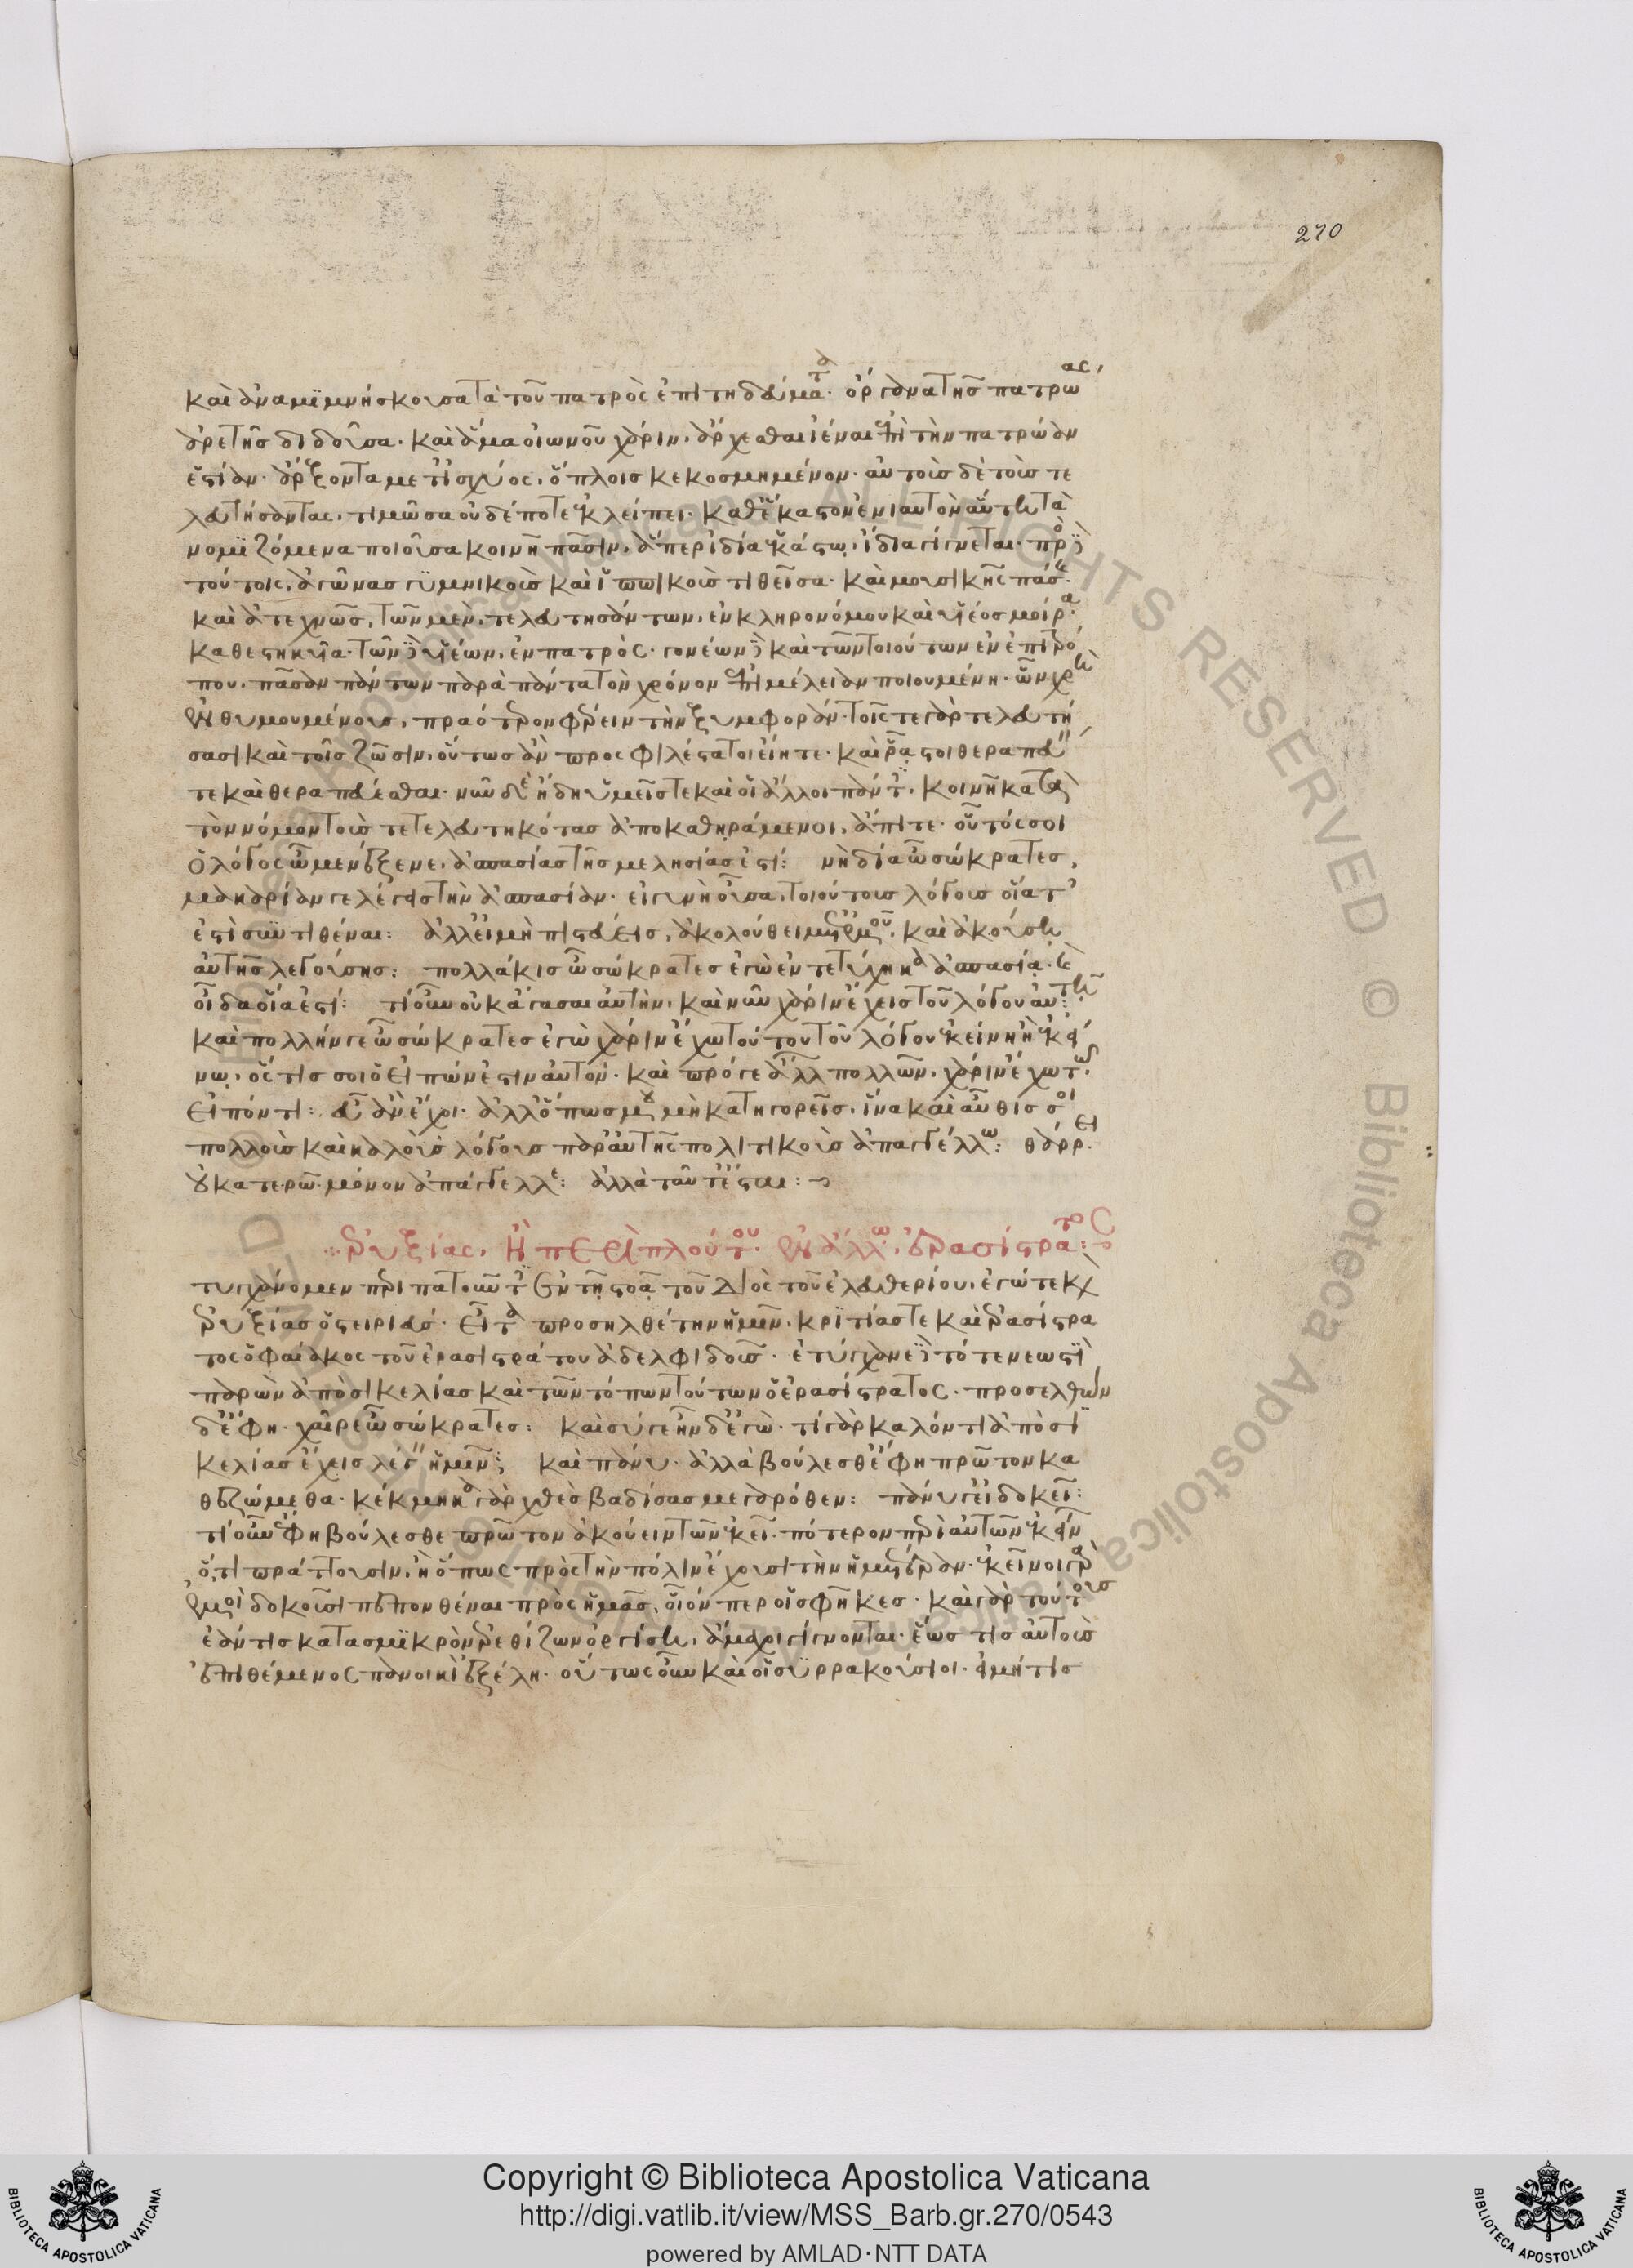 270
καὶ ἀναμιμνήσκουσα τὰ τοῦ πατρὸς ἐπιτηδεύματα· ὄργανα τῆς πατρώας
ἀρετῆς διδοῦσα· καὶ ἅμα οἰωνοῦ χάριν, ἄρχεσθαι ἰέναι ἐπὶ τὴν πατρώαν
ἑστίαν· ἄρξοντα μετ' ἰσχύος, ὅπλοις κεκοσμημένον· αὐτοὺς δὲ τοὺς τε
λευτήσαντας, τιμῶσα οὐδέποτε ἐκλείπει· καθ' ἕκαστον ἐνιαυτὸν αὐτὴ τὰ
νομιζόμενα ποιοῦσα κοινῇ πᾶσιν, ἅπερ ἰδία ἑκάστω, ἴδια γίγνεται· πρὸς δὲ
τούτοις, ἀγῶνας γυμνικοὺς καὶ ἱππικοὺς τιθεῖσα· καὶ μουσικῆς πάσης·
καὶ ἀτεχνῶς, τῶν μὲν, τελευτησάντων, ἐν κληρονόμου καὶ υἱέος μοίρα
καθεστηκυῖα· τῶν δὲ υἱέων, ἐν πατρὸς· γονέων δὲ καὶ τῶν τοιούτων ἐν ἐπιτρό
που, πᾶσαν πάντων παρὰ πάντα τὸν χρόνον ἐπιμέλειαν ποιουμένη· ὧν χρὴ
ἐνθυμουμένους, πραότερον φέρειν τὴν ξυμφοράν· τοῖς τε γὰρ τελευτή
σασι καὶ τοῖς ζῶσιν, οὕτως ἂν προσφιλέστατοι εἴητε· καὶ ῥᾷστοι θεραπεύειν
τε καὶ θεραπεύεσθαι· νῦν δὲ ἤδη ὑμεῖς τε καὶ οἱ ἄλλοι πάντες, κοινῇ κατὰ
τὸν νόμον τοὺς τετελευτηκότας ἀποκαθηράμενοι, ἄπιτε· οὗτός σοι
ὁ λόγος ὦ μενέξενε, ἀσπασίας τῆς μιλησίας ἐστί: νὴ δία ὦ σώκρατες,
μακαρίαν γε λέγεις τὴν ἀσπασίαν· εἰ γυνὴ οὖσα, τοιούτους λόγους οἵα τ'
ἐστὶ συντιθέναι: ἀλλ' εἰ μὴ πιστεύεις, ἀκολούθει μετ' ἐμοῦ, καὶ ἀκούση
αὐτῆς λεγούσης: πολλάκις ὦ σώκρατες ἐγὼ ἐντετύχηκα ἀσπασία· καὶ
οἶδα οἵα ἐστί: τί οὖν οὐκ ἄγασαι αὐτὴν, καὶ νῦν χάριν ἔχεις τοῦ λόγου αὐτῆ:
καὶ πολλήν γε ὦ σώκρατες ἐγὼ χάριν ἔχω τούτου τοῦ λόγου ἐκείνη ἢ ἐκεί
νω, ὅστις σοι ὁ εἰπών ἐστιν αὐτόν· καὶ πρός γε ἄλλων πολλῶν, χάριν ἔχω τῶ
εἰπόντι: εὖ ἂν ἔχοι· ἀλλ' ὅπως μου μὴ κατηγορεῖς, ἵνα καὶ αὖθίς σοι
πολλοὺς καὶ καλοὺς λόγους παρ' αὐτῆς πολιτικοὺς ἀπαγγέλλω: θάρρει
ὦ σώκρατες· μόνον ἀπάγγελλε: ἀλλὰ ταῦτ' ἔσται:
ἐρυξίας, ἢ περὶ πλούτου· ἐν ἄλλω, ἐρασίστρατος:
τυγχάνομεν περιπατοῦντες ἐν τῇ στοᾷ τοῦ Διὸς τοῦ ἐλευθερίου, ἐγώ τε καὶ
ἐρυξίας ὁ στειριεύς· εἶτα προσηλθέτην ἡμῖν, κριτίας τε καὶ ἐρασίστρα
τος ὁ φαίακος τοῦ ἐρασιστράτου ἀδελφιδοῦς· ἐτύγχανε δὲ τότε νεωστὶ
παρὼν ἀπὸ σικελίας καὶ τῶν τόπων τούτων ὁ ἐρασίστρατος· προσελθὼν
δ' ἔφη· χαῖρε ὦ σώκρατες: καὶ σύ γε ἦν δ' ἐγὼ· τί γὰρ καλόν τι ἀπὸ σι
κελίας ἔχεις λέγειν ἡμῖν; καὶ πάνυ· ἀλλὰ βούλεσθε ἔφη πρῶτον κα
θεζώμεθα· κέκμηκα γὰρ χθὲς βαδίσας μεγαρόθεν: πάνυ γ' εἰ δοκεῖ:
τί οὖν ἔφη βούλεσθε πρῶτον ἀκούειν τῶν ἐκεῖ· πότερον περὶ αὐτῶν ἐκείνων
ὅ,τι πράττουσιν, ἢ ὅπως πρὸς τὴν πόλιν ἔχουσι τὴν ἡμετέραν· ἐκεῖνοι γὰρ
ἐμοὶ δοκοῦσι πεπονθέναι πρὸς ἡμᾶς, οἷόν περ οἱ σφῆκες· καὶ γὰρ τούτους
ἐάν τις κατὰ σμικρὸν ἐρεθίζων ὀργίση, ἄμαχοι γίγνονται· ἕως τις αὐτοὺς
ἐπιθέμενος πανοικὶ ἐξέλη· οὕτως οὖν καὶ οἱ συρρακούσιοι· εἰ μή τις
Copyright © Biblioteca Apostolica Vaticana
http://digi.vatlib.it/view/MSS_Barb.gr.270/0543
powered by AMLAD·NTT DATA